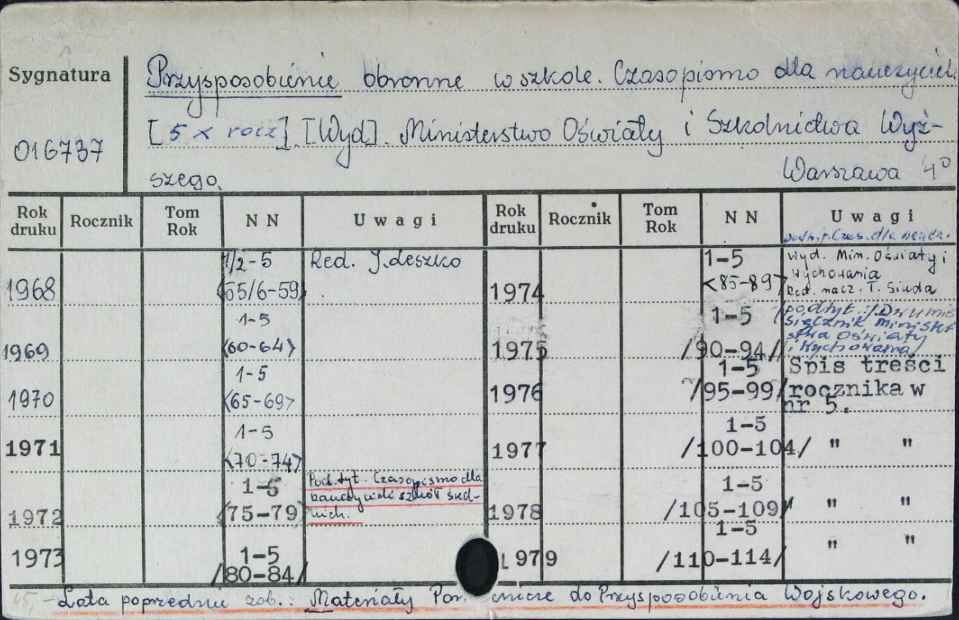 Sygnatura
016737
Przysposobienie obronne w szkole. Czasopismo dla nauczycieli
[5 x rocz]. [Wyd]. Ministerstwo Oświaty i Szkolnictwa Wyż-
szego. Warszawa 4°
Rok druku Rocznik Tom Rok NN Uwagi Rok druku Rocznik Tom Rok NN Uwagi
1968 1/2-5 <55/6-59> Red. J. Leszko
1969 1-5 <60-64>
1970 1-5 <65-69>
1971 1-5 <70-74>
1972 1-5 <75-79> Pod. tyt. Czasopismo dla
nauczycieli szkół śred-
nich.
1973 1-5 /80-84/
1974 1-5 <85-89> Wyd. Min. Oświaty i
Wychowania
Red. nacz. T. Siuda
1975 1-5 /90-94/ podtyt.: Dwumie
sięcznik Minist
stwa Oświaty
i Wychowania
1976 1-5 /95-99/ Spis treści
rocznika w
nr 5.
1977 1-5 /100-104/ " "
1978 1-5 /105-109/ " "
1979 1-5 /110-114/ " "
Lata poprzednie zob.: Materiały Pomocnicze do Przysposobienia Wojskowego.